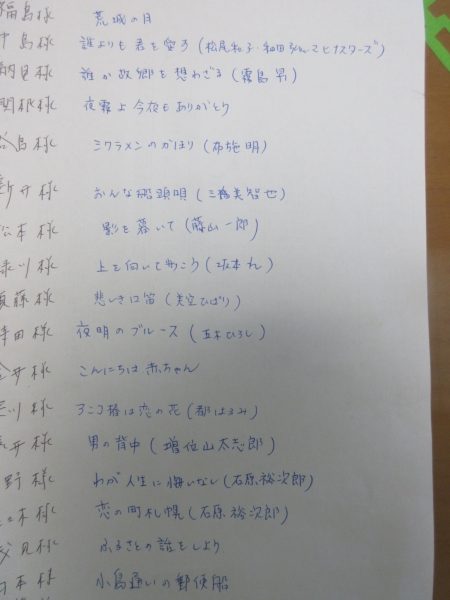 福島様 荒城の月
中島様 誰よりも君を愛す (松尾和子・和田弘とマヒナスターズ)
様 誰か故郷を想わざる (霧島昇)
様 夜霧よ今夜もありがとう
島様 シクラメンのかほり (布施明)
新井様 おんな船頭唄 (三橋美智也)
松本様 影を慕いて (藤山一郎)
川様 上を向いて歩こう (坂本九)
藤様 悲しき口笛 (美空ひばり)
田様 夜明のブルース (五木ひろし)
井様 こんにちは赤ちゃん
川様 アンコ椿は恋の花 (都はるみ)
井様 男の背中 (増位山太志郎)
野様 わが人生に悔いなし (石原裕次郎)
木様 恋の町札幌 (石原裕次郎)
見様 ふるさとの誰をしより
本様 小島通いの郵便船